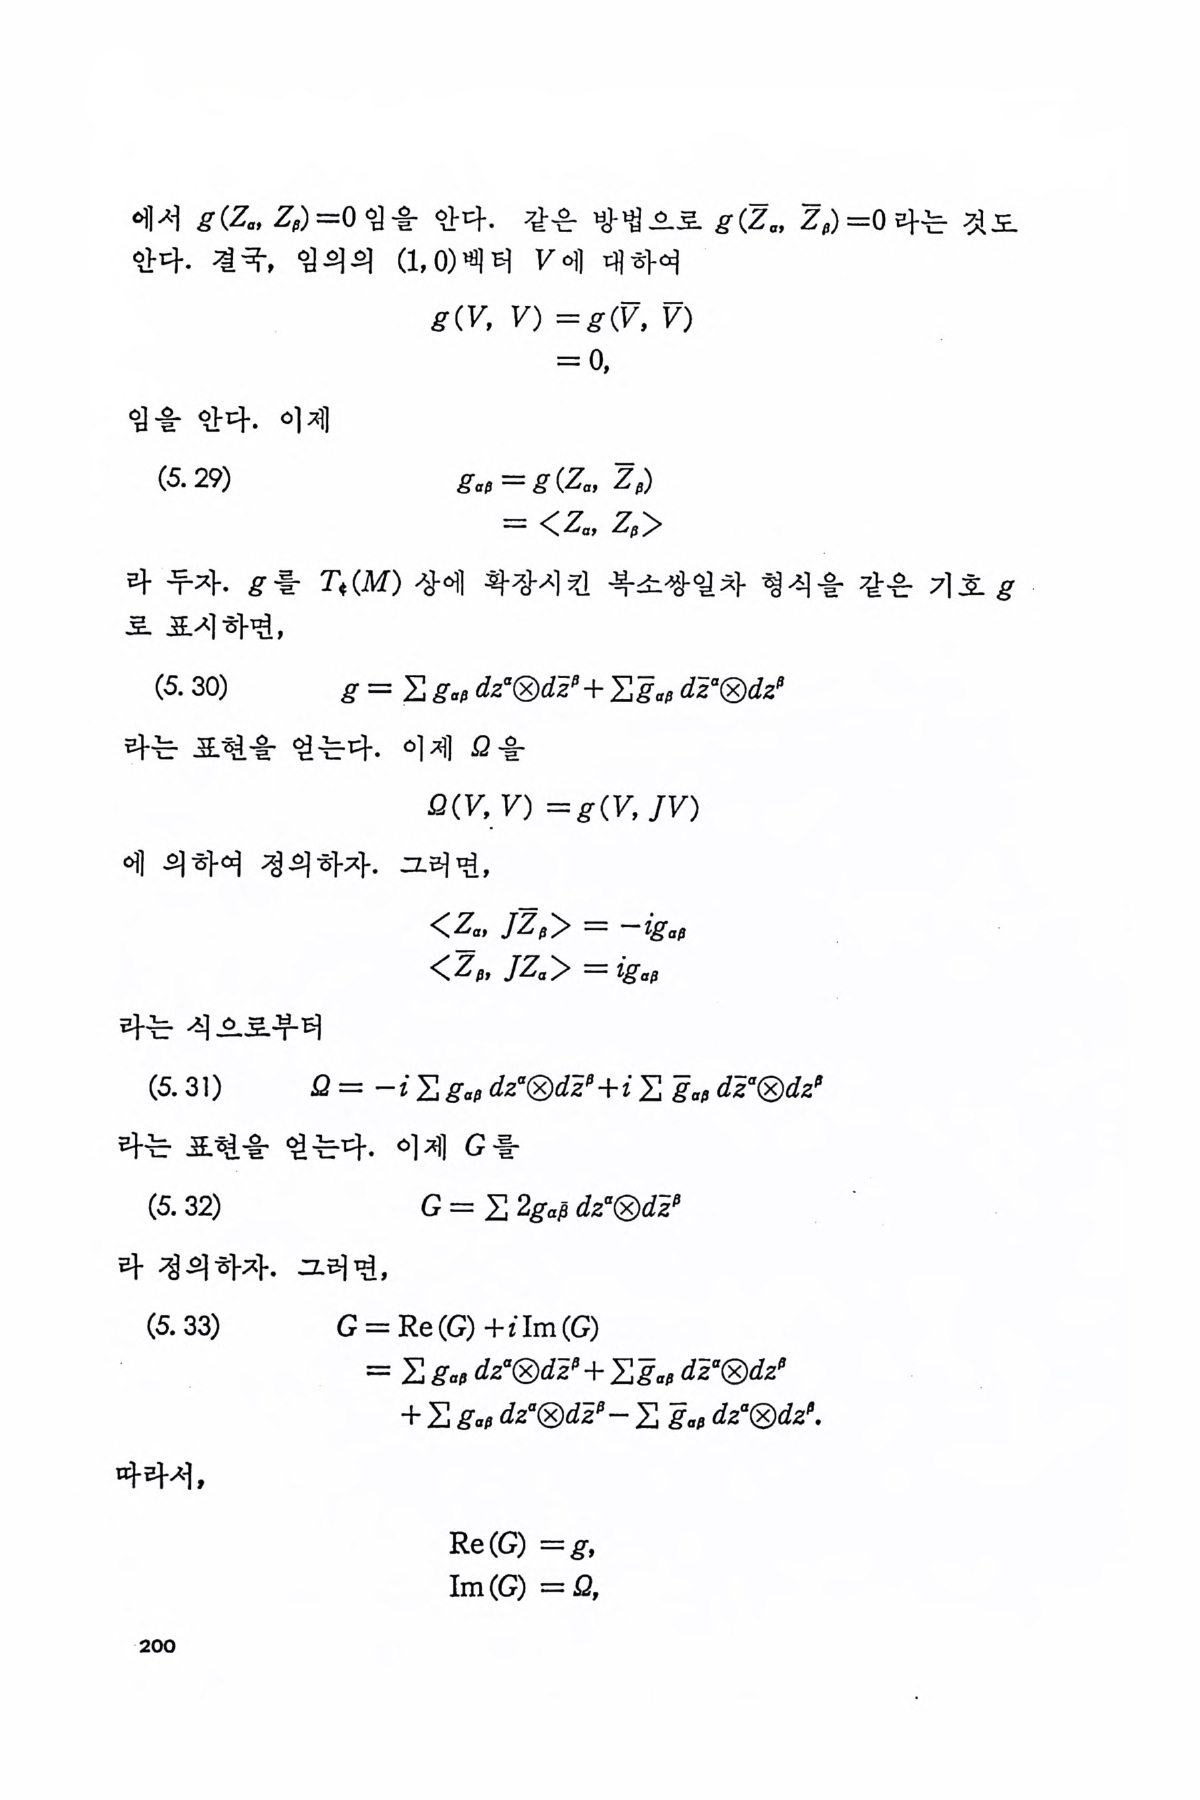 에서 g(Z_α, Z_β)=0임을 안다. 같은 방법으로 g(Z̅_α, Z̅_β)=0라는 것도
안다. 결국, 임의의 (1,0)벡터 V에 대하여
g(V, V) = g(V̅, V̅)
= 0,
임을 안다. 이제
(5. 29) g_αβ = g(Z_α, Z̅_β)
= <Z_α, Z_β>
라 두자. g를 T_¢(M) 상에 확장시킨 복소쌍일차 형식을 같은 기호 g
로 표시하면,
(5. 30) g = ∑ g_αβ dz^α⊗dz̅^β + ∑ g̅_αβ dz̅^α⊗dz^β
라는 표현을 얻는다. 이제 Ω을
Ω(V, V) = g(V, JV)
에 의하여 정의하자. 그러면,
<Z_α, JZ̅_β> = −ig_αβ
<Z̅_β, JZ_α> = ig_αβ
라는 식으로부터
(5. 31) Ω = −i ∑ g_αβ dz^α⊗dz̅^β + i ∑ g̅_αβ dz̅^α⊗dz^β
라는 표현을 얻는다. 이제 G를
(5. 32) G = ∑ 2g_αβ̅ dz^α⊗dz̅^β
라 정의하자. 그러면,
(5. 33) G = Re(G) + i Im(G)
= ∑ g_αβ dz^α⊗dz̅^β + ∑ g̅_αβ dz̅^α⊗dz^β
+ ∑ g_αβ dz^α⊗dz̅^β − ∑ g̅_αβ dz^α⊗dz^β.
따라서,
Re(G) = g,
Im(G) = Ω,
200